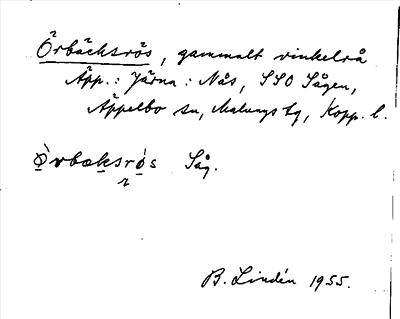 Örbäcksrös, gammalt vinkelrå
Äpp.: Järna: Nås, SSO Sågen,
Äppelbo sn, Malungs tg, Kopp. l.
Ørbæksrós Såg.
B. Lindén 1955.